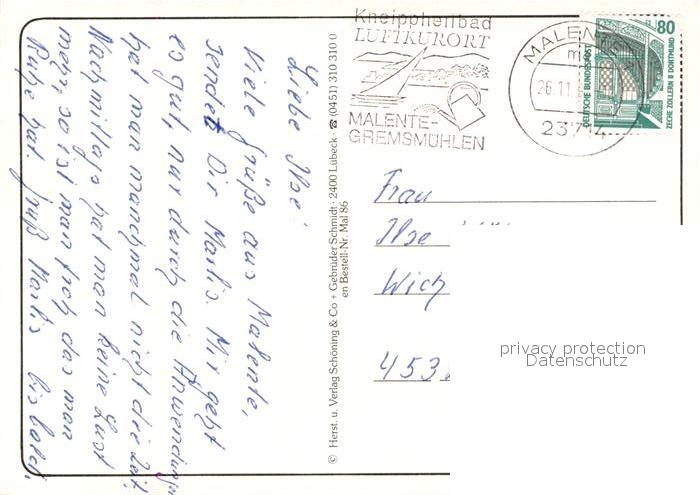 Liebe Ilse!
Viele Grüße aus Malente,
sendet Dir Marlis. Mir geht
es gut, nur durch die Anwendungen
hat man manchmal nicht die Zeit.
Nachmittags hat man keine Lust
mehr, so ist man froh das man
Ruhe hat. Gruß Marlis bis bald.
© Herst. u. Verlag Schöning & Co + Gebrüder Schmidt · 2400 Lübeck · ☎ (04 51) 310 310 0
en Bestell-Nr. Mal 86
Kneippheilbad
LUFTKURORT
MALENTE-
GREMSMÜHLEN
MALENTE
26.11.
23714
80
DEUTSCHE BUNDESPOST
ZECHE ZOLLERN II DORTMUND
Frau
Ilse
Wich
453
privacy protection
Datenschutz